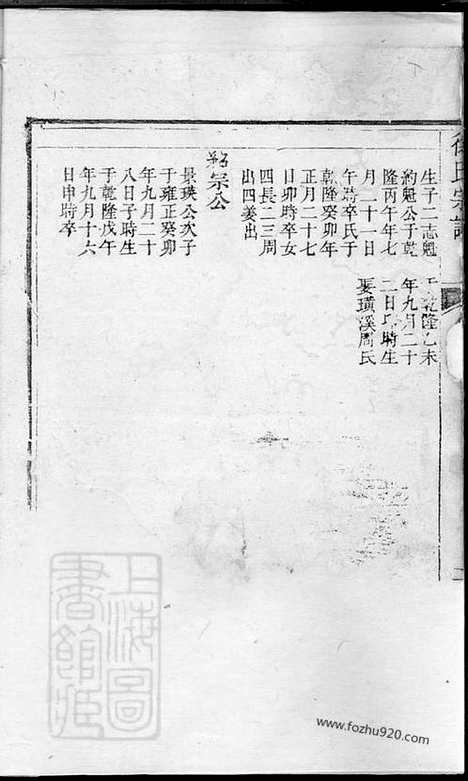 氏宗譜
生子二志魁
約魁公于乾
隆丙午年七
月二十一日
午時卒氏于
乾隆癸卯年
正月二十七
日卯時卒女
四長二三周
出四姜出
乾隆乙未
年九月二十
二日丑時生
娶璜溪周氏
宗公
景瑛公次子
于雍正癸卯
年九月二十
八日子時生
于乾隆戊午
年九月十六
日申時卒
上海圖
書館藏
www.fozhu920.com